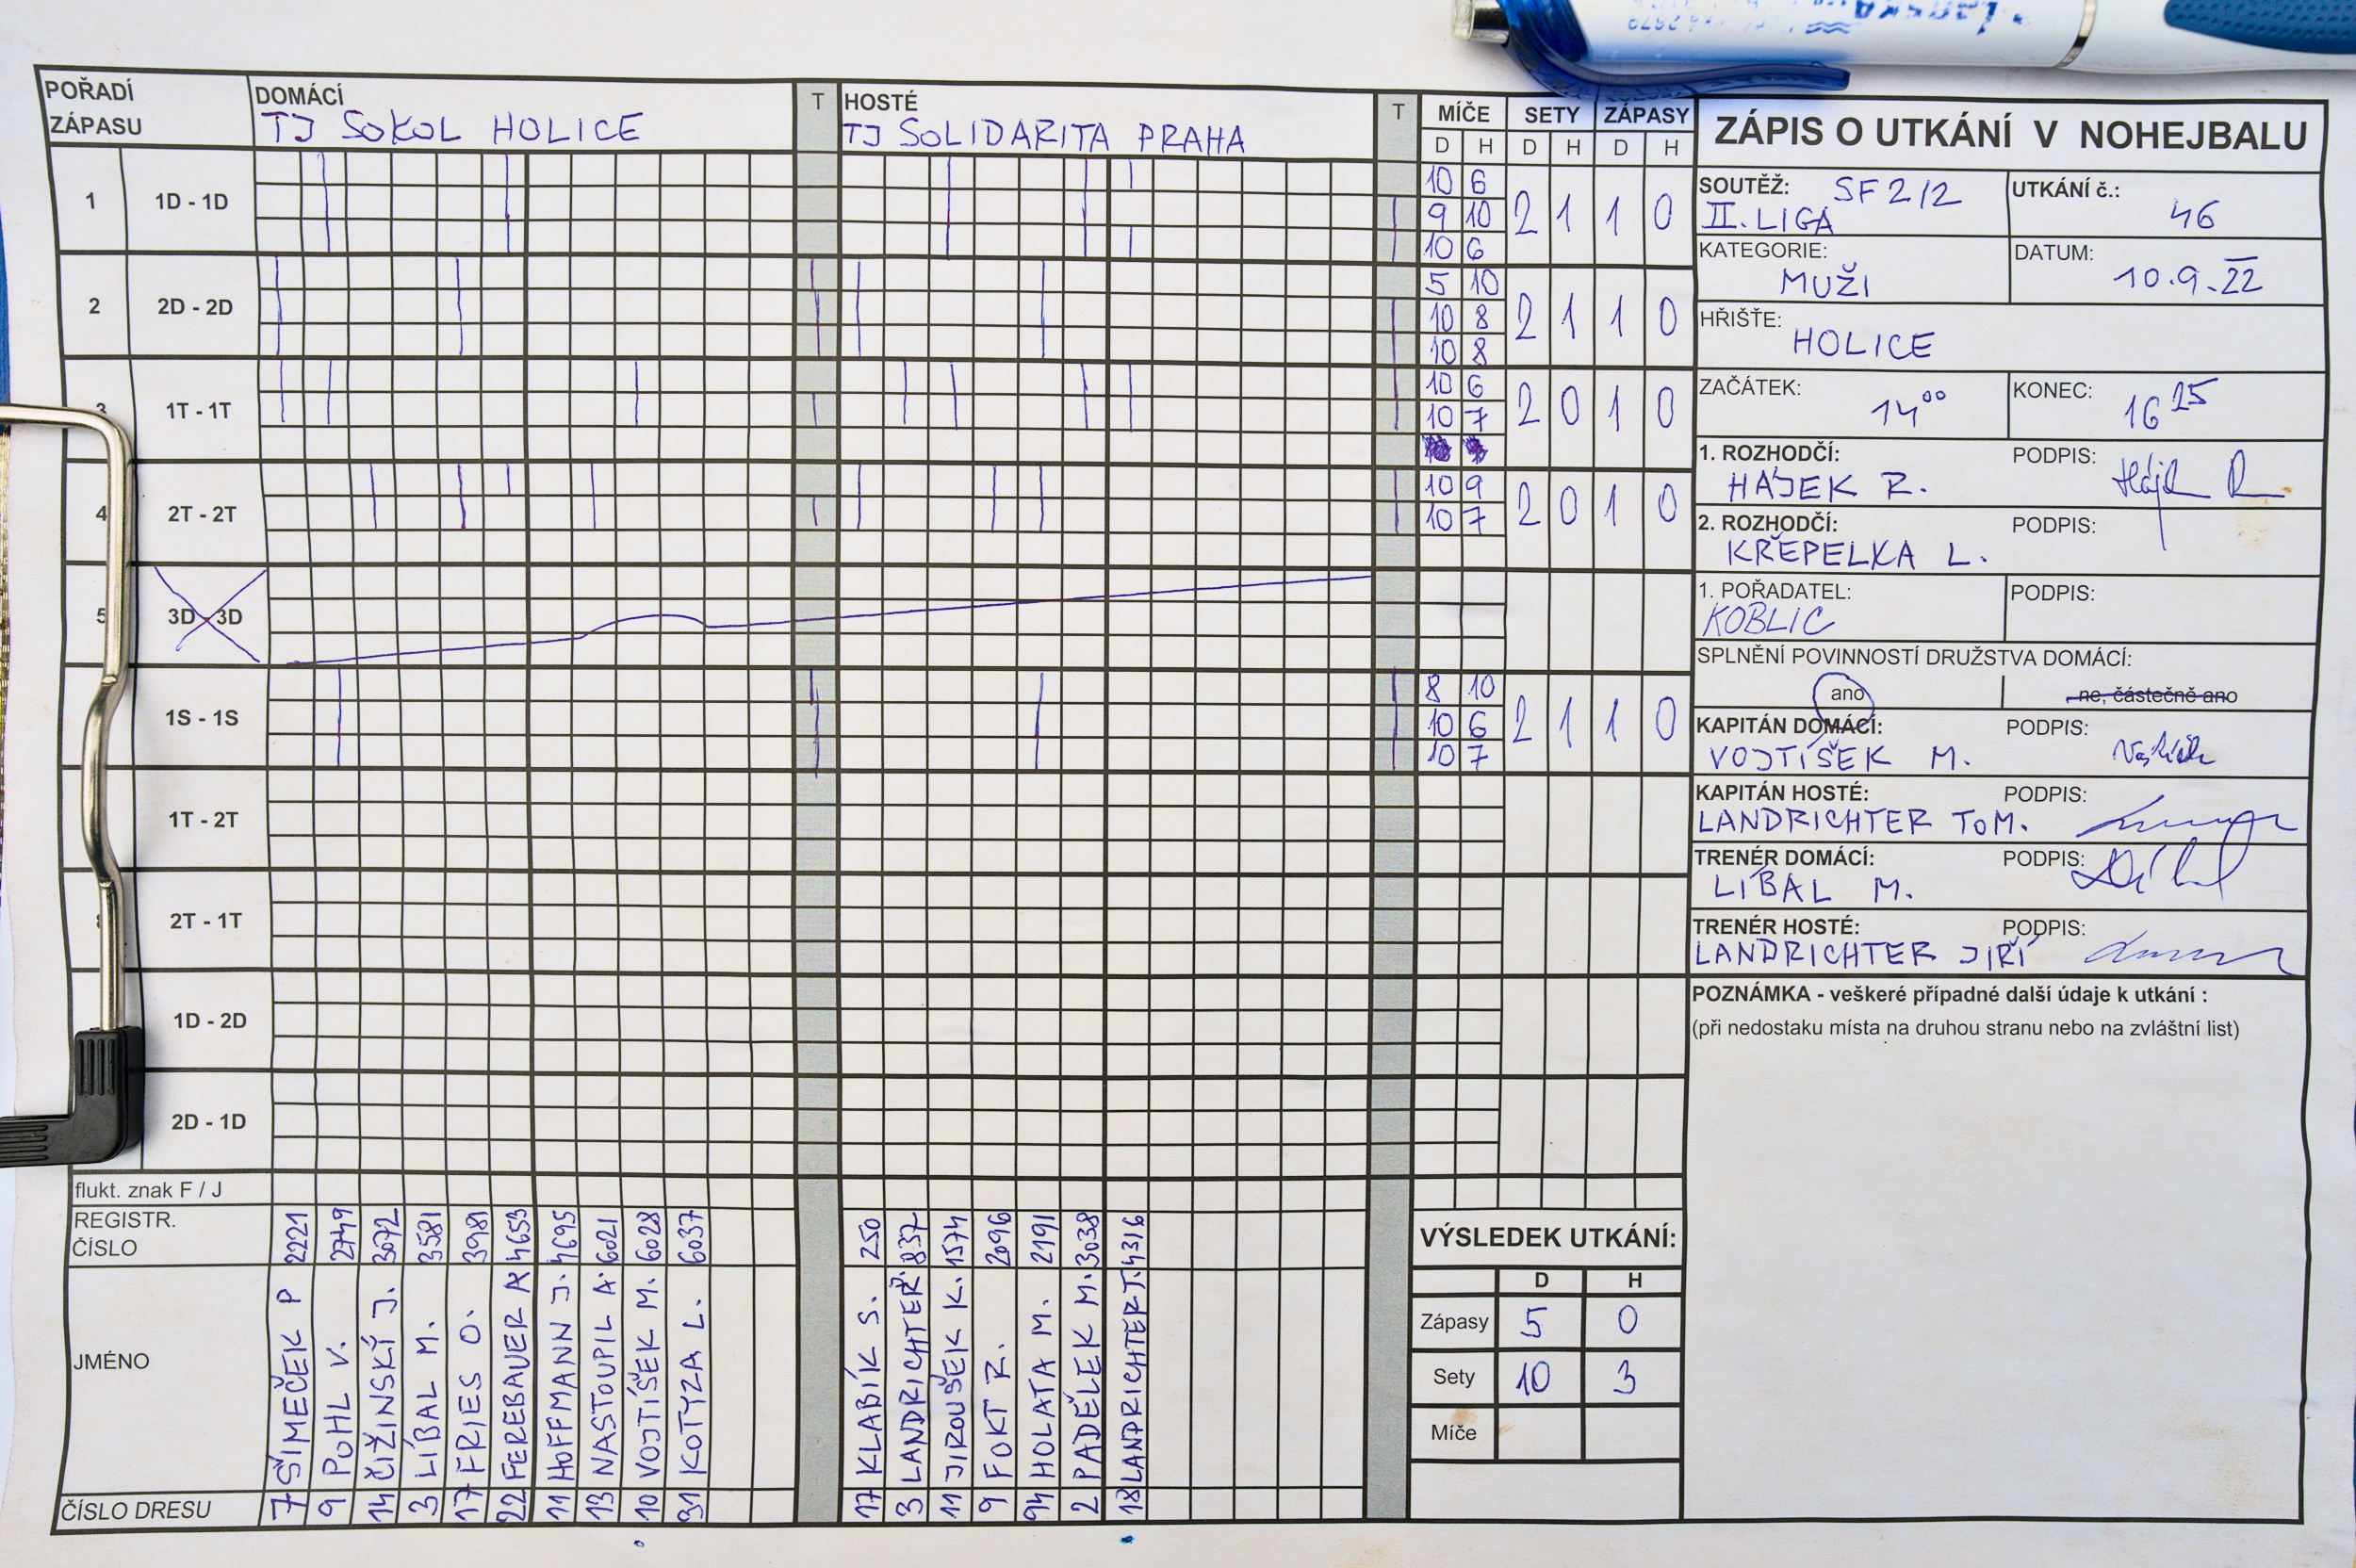 POŘADÍ
ZÁPASU
DOMÁCÍ
TJ SOKOL HOLICE
T
HOSTÉ
TJ SOLIDARITA PRAHA
T
MÍČE SETY ZÁPASY
D H D H D H
1 1D - 1D
10 6
9 10
10 6
2 1 1 0
2 2D - 2D
5 10
10 8
10 8
2 1 1 0
3 1T - 1T
10 6
10 7
2 0 1 0
4 2T - 2T
10 9
10 7
2 0 1 0
5 3D - 3D
1S - 1S
8 10
10 6
10 7
2 1 1 0
1T - 2T
2T - 1T
1D - 2D
2D - 1D
flukt. znak F / J
REGISTR.
ČÍSLO
2221 2749 3072 3581 3981 4653 4695 6021 6028 6037
250 837 1574 2096 2191 3038 4316
JMÉNO
ŠÍMEČEK P
POHL V.
ČIŽINSKÝ J.
LÍBAL M.
FRIES O.
FEREBAUER A.
HOFFMANN J.
NASTOUPIL A.
VOJTÍŠEK M.
KOTYZA L.
KLABÍK S.
LANDRICHTER
JIROUŠEK K.
FOKT R.
HOLATA M.
PADĚLEK M.
LANDRICHTER T.
ČÍSLO DRESU
7 9 14 3 17 22 11 13 10 31
17 3 11 9 94 2 18
VÝSLEDEK UTKÁNÍ:
D H
Zápasy 5 0
Sety 10 3
Míče
ZÁPIS O UTKÁNÍ V NOHEJBALU
SOUTĚŽ: SF 2/2
II. LIGA
UTKÁNÍ č.:
46
KATEGORIE:
MUŽI
DATUM:
10.9.22
HŘIŠTE:
HOLICE
ZAČÁTEK:
14 00
KONEC:
16 25
1. ROZHODČÍ: PODPIS:
HÁJEK R.
2. ROZHODČÍ: PODPIS:
KŘEPELKA L.
1. POŘADATEL: PODPIS:
KOBLIC
SPLNĚNÍ POVINNOSTÍ DRUŽSTVA DOMÁCÍ:
ano ne, částečně ano
KAPITÁN DOMÁCÍ: PODPIS:
VOJTÍŠEK M.
KAPITÁN HOSTÉ: PODPIS:
LANDRICHTER TOM.
TRENÉR DOMÁCÍ: PODPIS:
LÍBAL M.
TRENÉR HOSTÉ: PODPIS:
LANDRICHTER JIŘÍ
POZNÁMKA - veškeré případné další údaje k utkání :
(při nedostaku místa na druhou stranu nebo na zvláštní list)